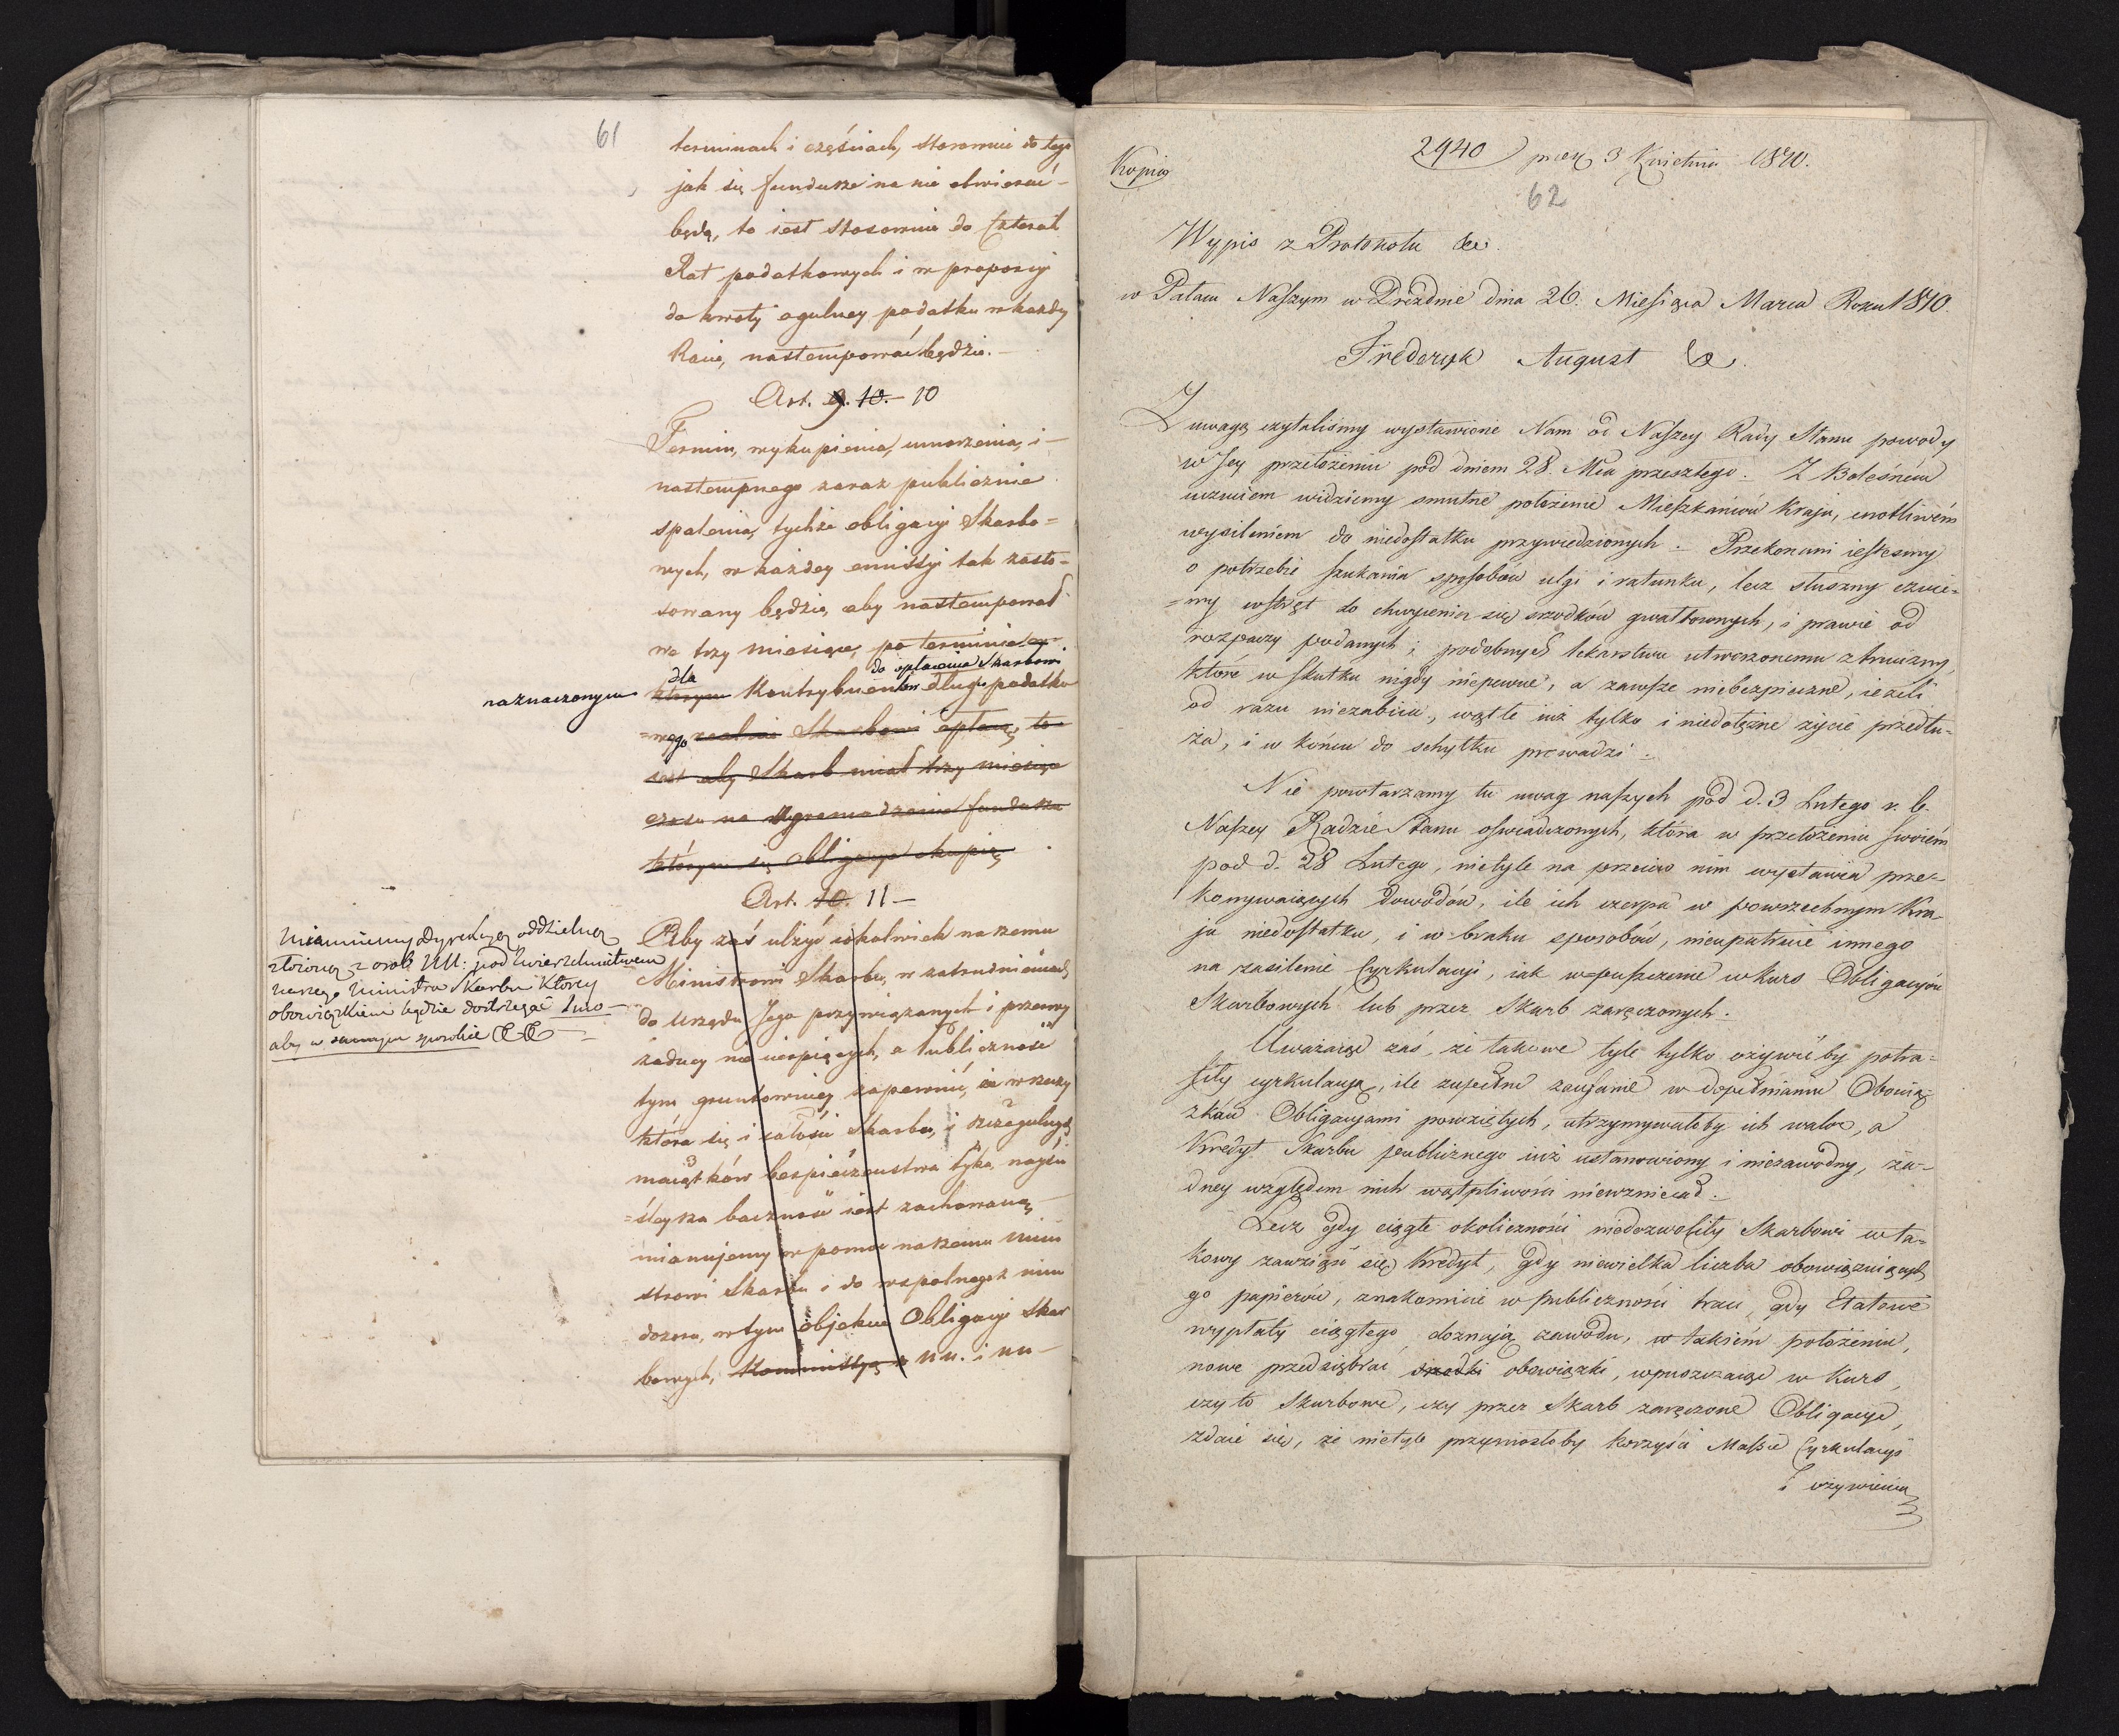 61
terminach i częściach, stosownie do tego
jak się fundusze na nie otwierać
będą, to iest stosownie do Czterech
Rat podatkowych i w proporcyi
do kwoty ogulney podatku w każdey
Racie, nastempować będzie.
Art. 9. 10. 10
Termin, wykupienia, umorzenia, i
nastempnego zaraz publicznie
spalenia, tychże obligacyi Skarbo=
wych, w każdey emissyi tak zasto=
sowany będzie, aby nastempował
we trzy miesiące, po terminie
do opłacenia Skarbowi
naznaczonym dla którym Kontrybuentów długu podatko
=wego realnie Skarbowi opłacą, to
iest aby Skarb miał trzy miesiące
czasu na zgromadzenie funduszu
którym się obligacye skupią
Art. 10. 11
Aby zaś ulżyć iakolwiek naszemu
Ministrowi Skarbu, w zatrudnieniach,
do Urzędu Jego przywiązanych i przerwy
żadney nie cierpiących, a Publiczność
tym gruntowniey zapewnić, że w rzeczy
która się i całości Skarbu, i szczegulnych
maiątków bespieczeństwa tyka, nayści
=śleysza baczność iest zachowaną
mianujemy w pomoc naszemu Mini
strowi Skarbu i do wspolnego z nim
dozoru, w tym objekcie Obligacyi Skar
bowych, Kommissyą z NN. i NN
Mianuiemy Dyrekcyą oddzielną
złożoną z osob NN: pod zwierzchnictwem
naszego Ministra Skarbu Którey
obowiązkiem będzie dostrzegać
aby w samym sposobie
Kopia
2940 prez 3 Kwietnia 1810.
62
Wypis z Protokołu &c.
w Pałacu Naszym w Dreźdnie dnia 26. Miesiąca Marca Roku 1810.
Frederyk August &c.
Z uwagą czytaliśmy wystawione Nam od Naszey Rady Stanu powody
w Jey przełożeniu pod dniem 28. Mca przeszłego. Z Boleśném
uczuciem widziemy smutne położenie Mieszkańców Kraju, cnotliwém
wysileniem do niedostatku przywiedzionych. Przekonani iesteśmy
o potrzebie szukania sposobów ulgi i ratunku, lecz słuszny czuie=
=my wstręt do chwycenia się srzodków gwałtownych, i prawie od
rozpaczy podanych; podobnych lekarstwu utworzonemu z trucizny,
które w skutku nigdy niepewne, a zawsze niebezpieczne, ieżeli
od razu niezabiia, wątłe iuż tylko i niedołężne życie przedłu=
ża, i w końcu do schyłku prowadzi.
Nie powtarzamy tu uwag naszych pod d. 3 Lutego r. b.
Naszey Radzie Stanu oświadczonych, która w przełożeniu swoiém
pod d. 28 Lutego, nietyle na przeciw nim wystawia prze=
konywaiących dowodów, ile ich czerpa w powszechnym Kra=
ju niedostatku, i w braku sposobów, nieupatruie innego
na zasilenie Cyrkulacyi, iak wpuszczenie w kurs Obligacyów
Skarbowych lub przez Skarb zaręczonych.
Uważaiąc zaś, że takowe tyle tylko ożywićby potra=
fiły cyrkulacyą, ile zupełne zaufanie w dopełnianiu Obowią=
zków Obligacyami powziętych, utrzymywałoby ich walor, a
Kredyt Skarbu publicznego iuż ustanowiony i niezawodny, ża=
dney względem nich wątpliwości niewzniecał.
Lecz gdy ciągłe okoliczności niedozwoliły Skarbowi w ta=
kowy zawziąść się Kredyt, gdy niewielka liczba obowiązuiących
go papierów, znakomicie w publiczności traci, gdy Etatowe
wypłaty ciągłego doznają zawodu, w takiém położeniu,
nowe przedsiębrać środki obowiązki, wpuszczaiąc w Kurs,
czy to Skarbowe, czy przez Skarb zaręczone Obligacye,
zdaie się, że nietyle przyniosłoby korzyści Massie Cyrkulacyi
i ożywienia